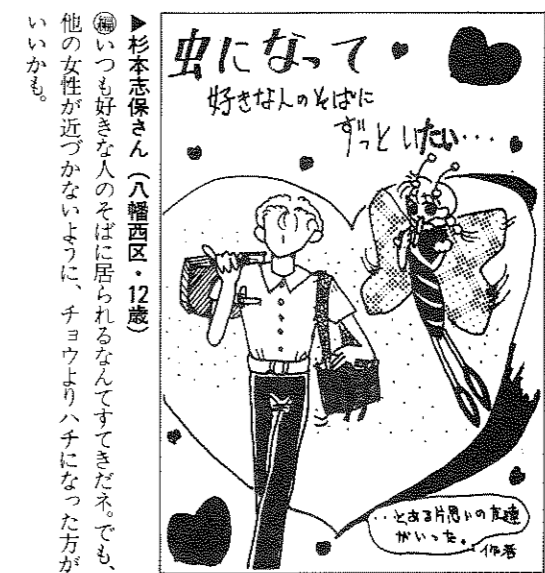 虫になって・
好きな人のそばに
ずっといたい・・・
・・とある片思いの友達
がいった。
作者
▶杉本志保さん（八幡西区・12歳）
編いつも好きな人のそばに居られるなんてすてきだネ。でも、
他の女性が近づかないように、チョウよりハチになった方が
いいかも。